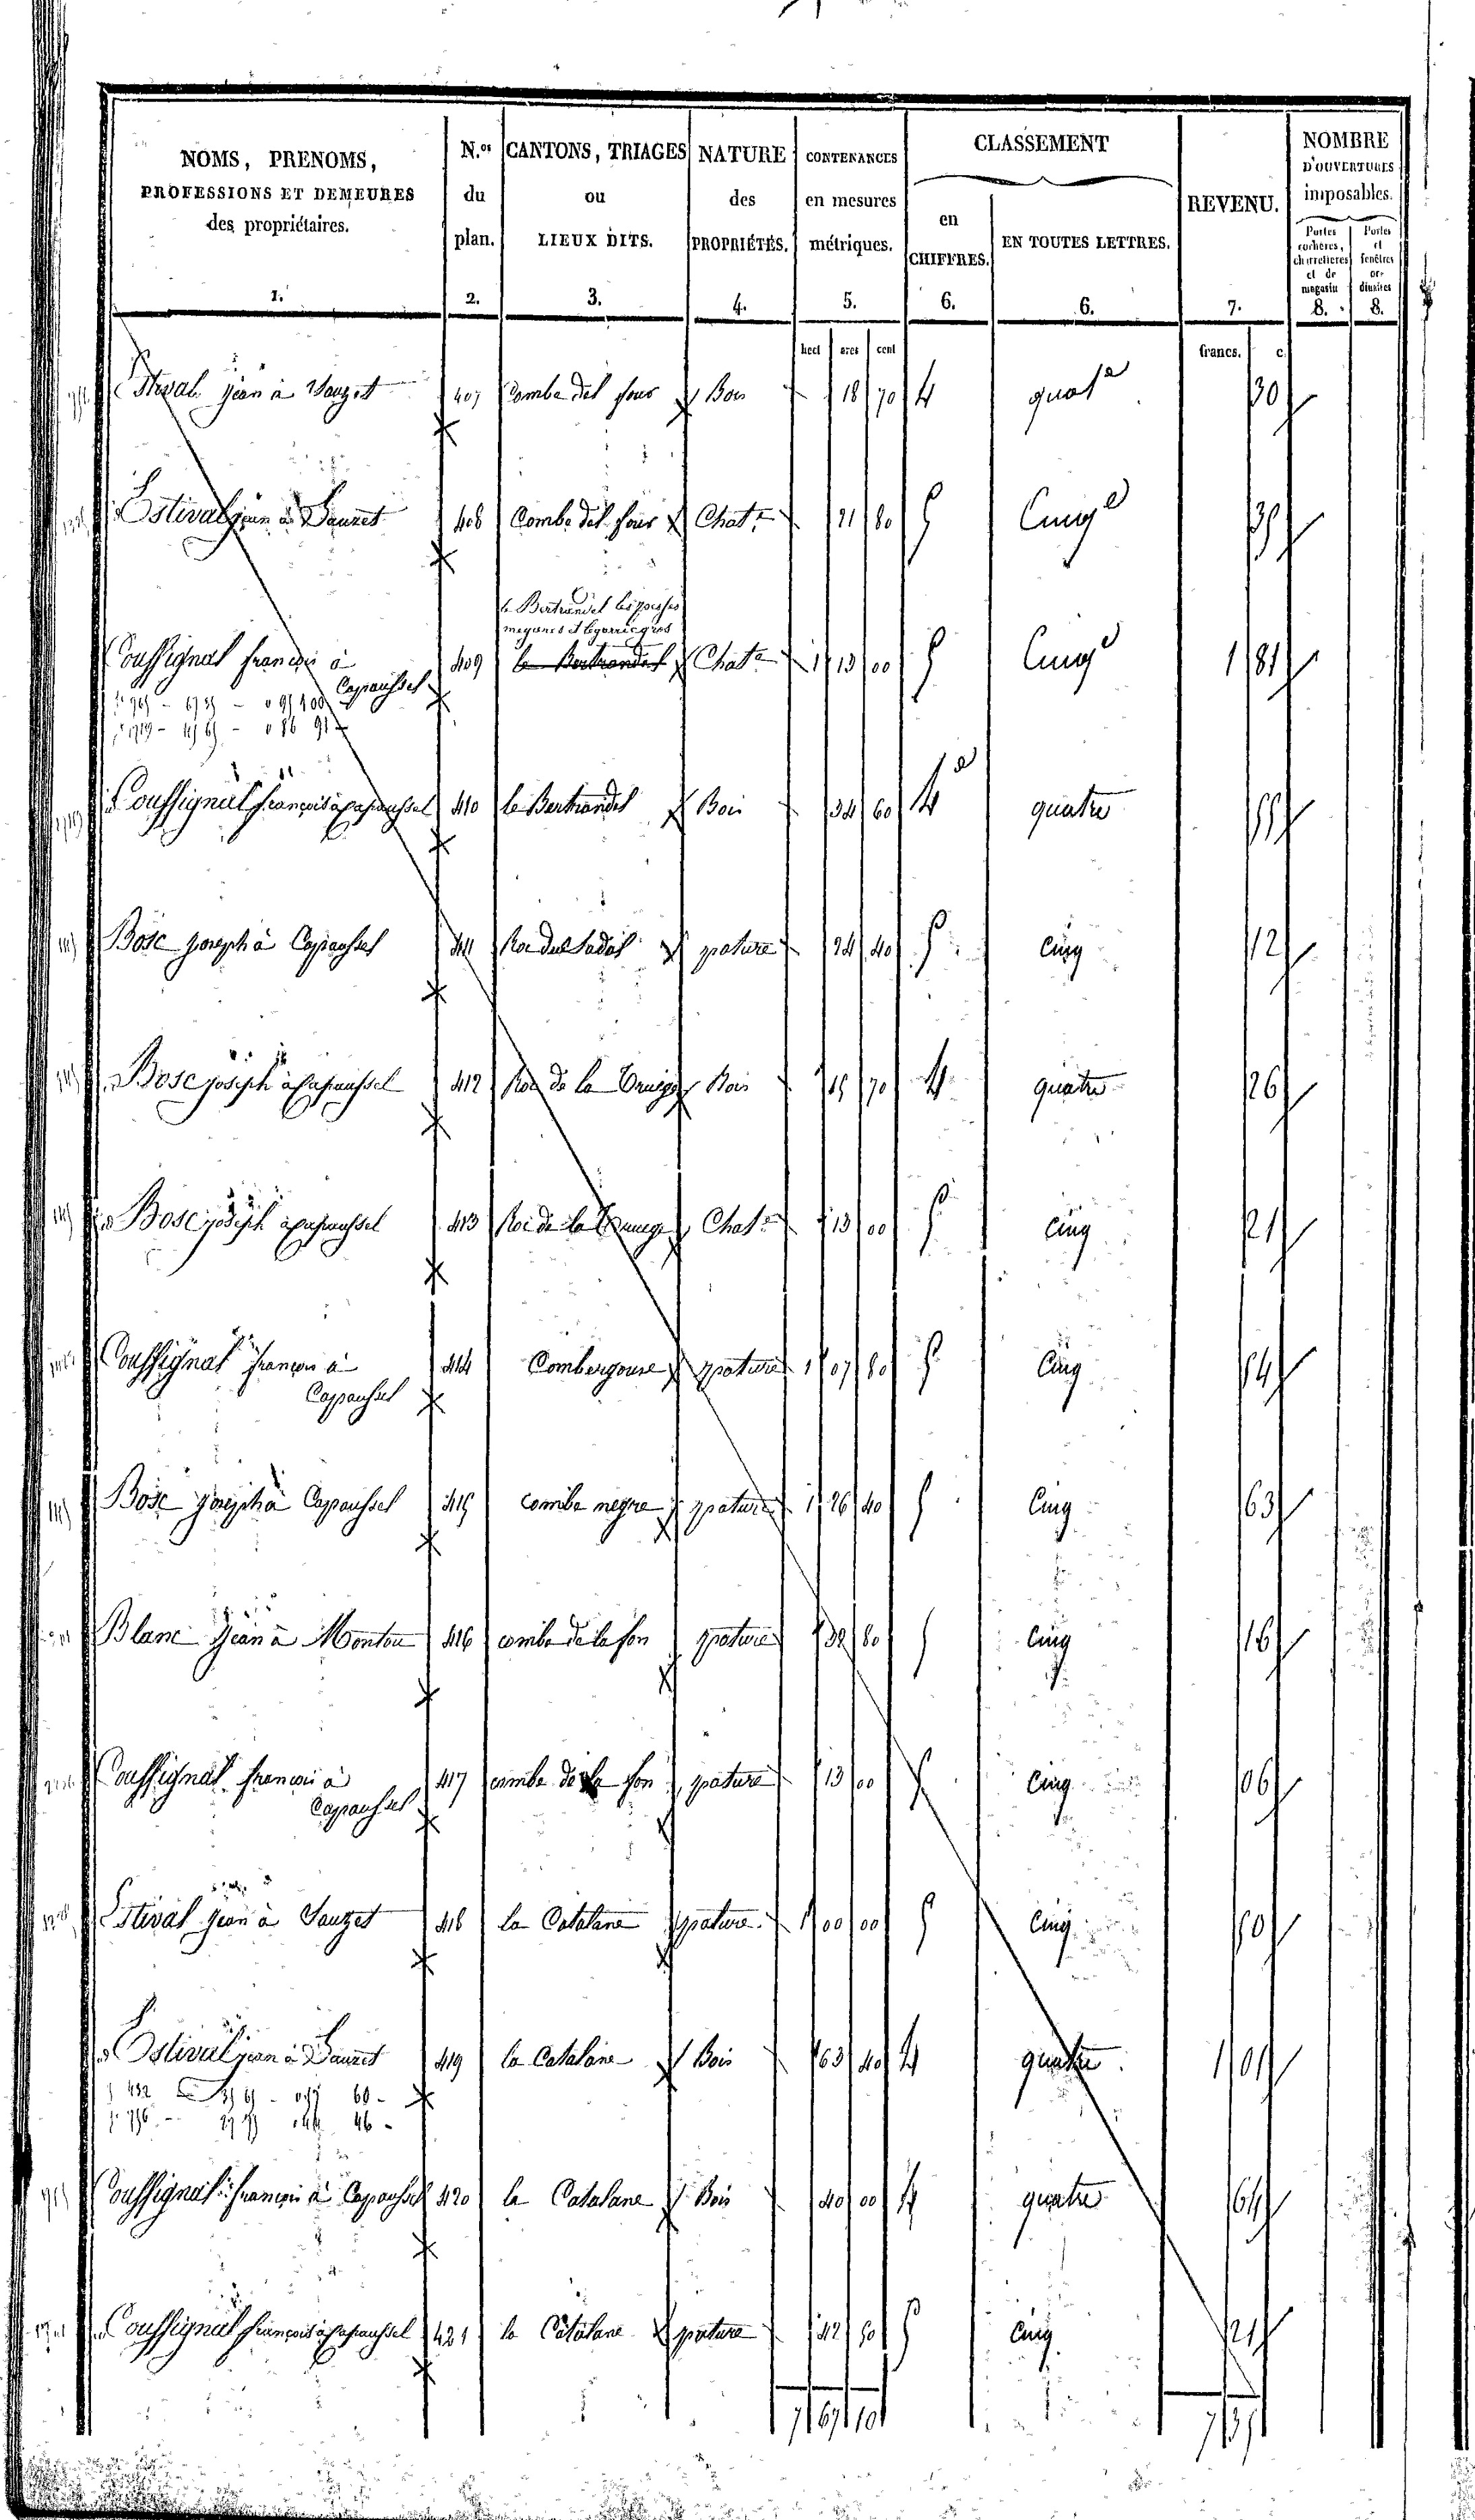 NOMS, PRENOMS, PROFESSIONS ET DEMEURES des propriétaires. 1.
N.os du plan. 2.
CANTONS, TRIAGES ou LIEUX DITS. 3.
NATURE des PROPRIÉTÉS. 4.
CONTENANCES en mesures métriques. 5.
CLASSEMENT
en CHIFFRES. 6.
EN TOUTES LETTRES. 6.
REVENU. 7.
NOMBRE D'OUVERTURES imposables.
Portes cochères, charretières et de magasin 8.
Portes et fenêtres ordinaires 8.
hect ares cent francs. c.
Estival Jean à Sauzet 407 Combe del four Bois 18 70 4 quat.e 30
Estival jean à Sauzet 408 Combe del four Chat.r 21 80 5 Cinq 35
le Bertrandel
Coussignal françois à Capaussel 409 le Bertrandel Chat.r 1 13 00 5 Cinq 1 81
Coussignal françois à Capaussel 410 le Bertrandel Bois 34 60 4 quatre 55
Bosc joseph à Capaussel 411 pature 24 40 5 Cinq 12
Bosc joseph à Capaussel 412 Roc de la Bois 70 4 quatre 26
Bosc joseph à Capaussel 413 Roc de la Chat.r 13 00 5 Cinq 21
Coussignal françois à Capaussel 414 Combergouse pature 1 07 80 5 Cinq 54
Bosc joseph à Capaussel 415 combe negre pature 1 26 40 5 Cinq 63
Blanc Jean à Montou 416 combe de la fon pature 32 80 5 Cinq 16
Coussignal françois à Capaussel 417 combe de la fon pature 13 00 5 Cinq 06
Estival Jean à Sauzet 418 la Catalane pature 1 00 00 5 Cinq 50
Estival jean à Sauzet 419 la Catalane Bois 63 40 4 quatre 1 01
Coussignal françois à Capaussel 420 la Catalane Bois 40 00 4 quatre 64
Coussignal françois à Capaussel 421 la Catalane pature 42 50 5 Cinq 21
7 67 10